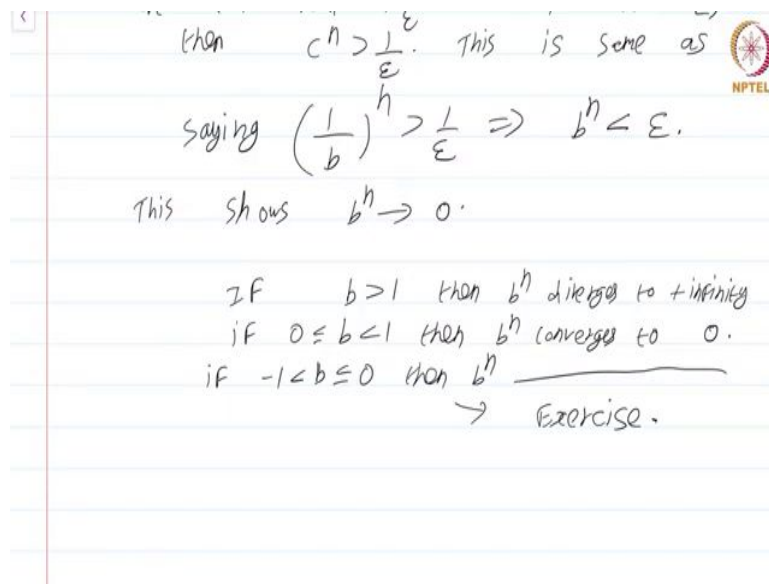 then cⁿ > 1/ε. This is same as
NPTEL
saying (1/b)ⁿ > 1/ε ⇒ bⁿ < ε.
This shows bⁿ → 0.
If b > 1 then bⁿ diverges to + infinity
if 0 ≤ b < 1 then bⁿ converges to 0.
if -1 < b ≤ 0 then bⁿ ______
→ Exercise.